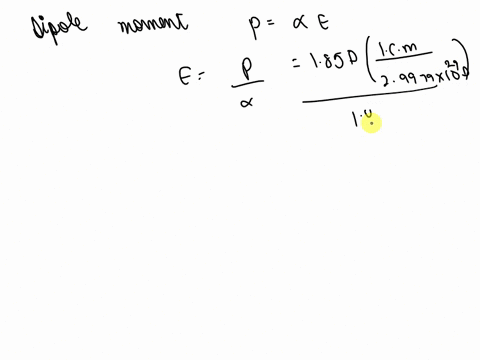 Dipole moment p = α E
E = P / α = 1.85 D ( 1.C.m / 2.99 m × 10^29 D )
1.4